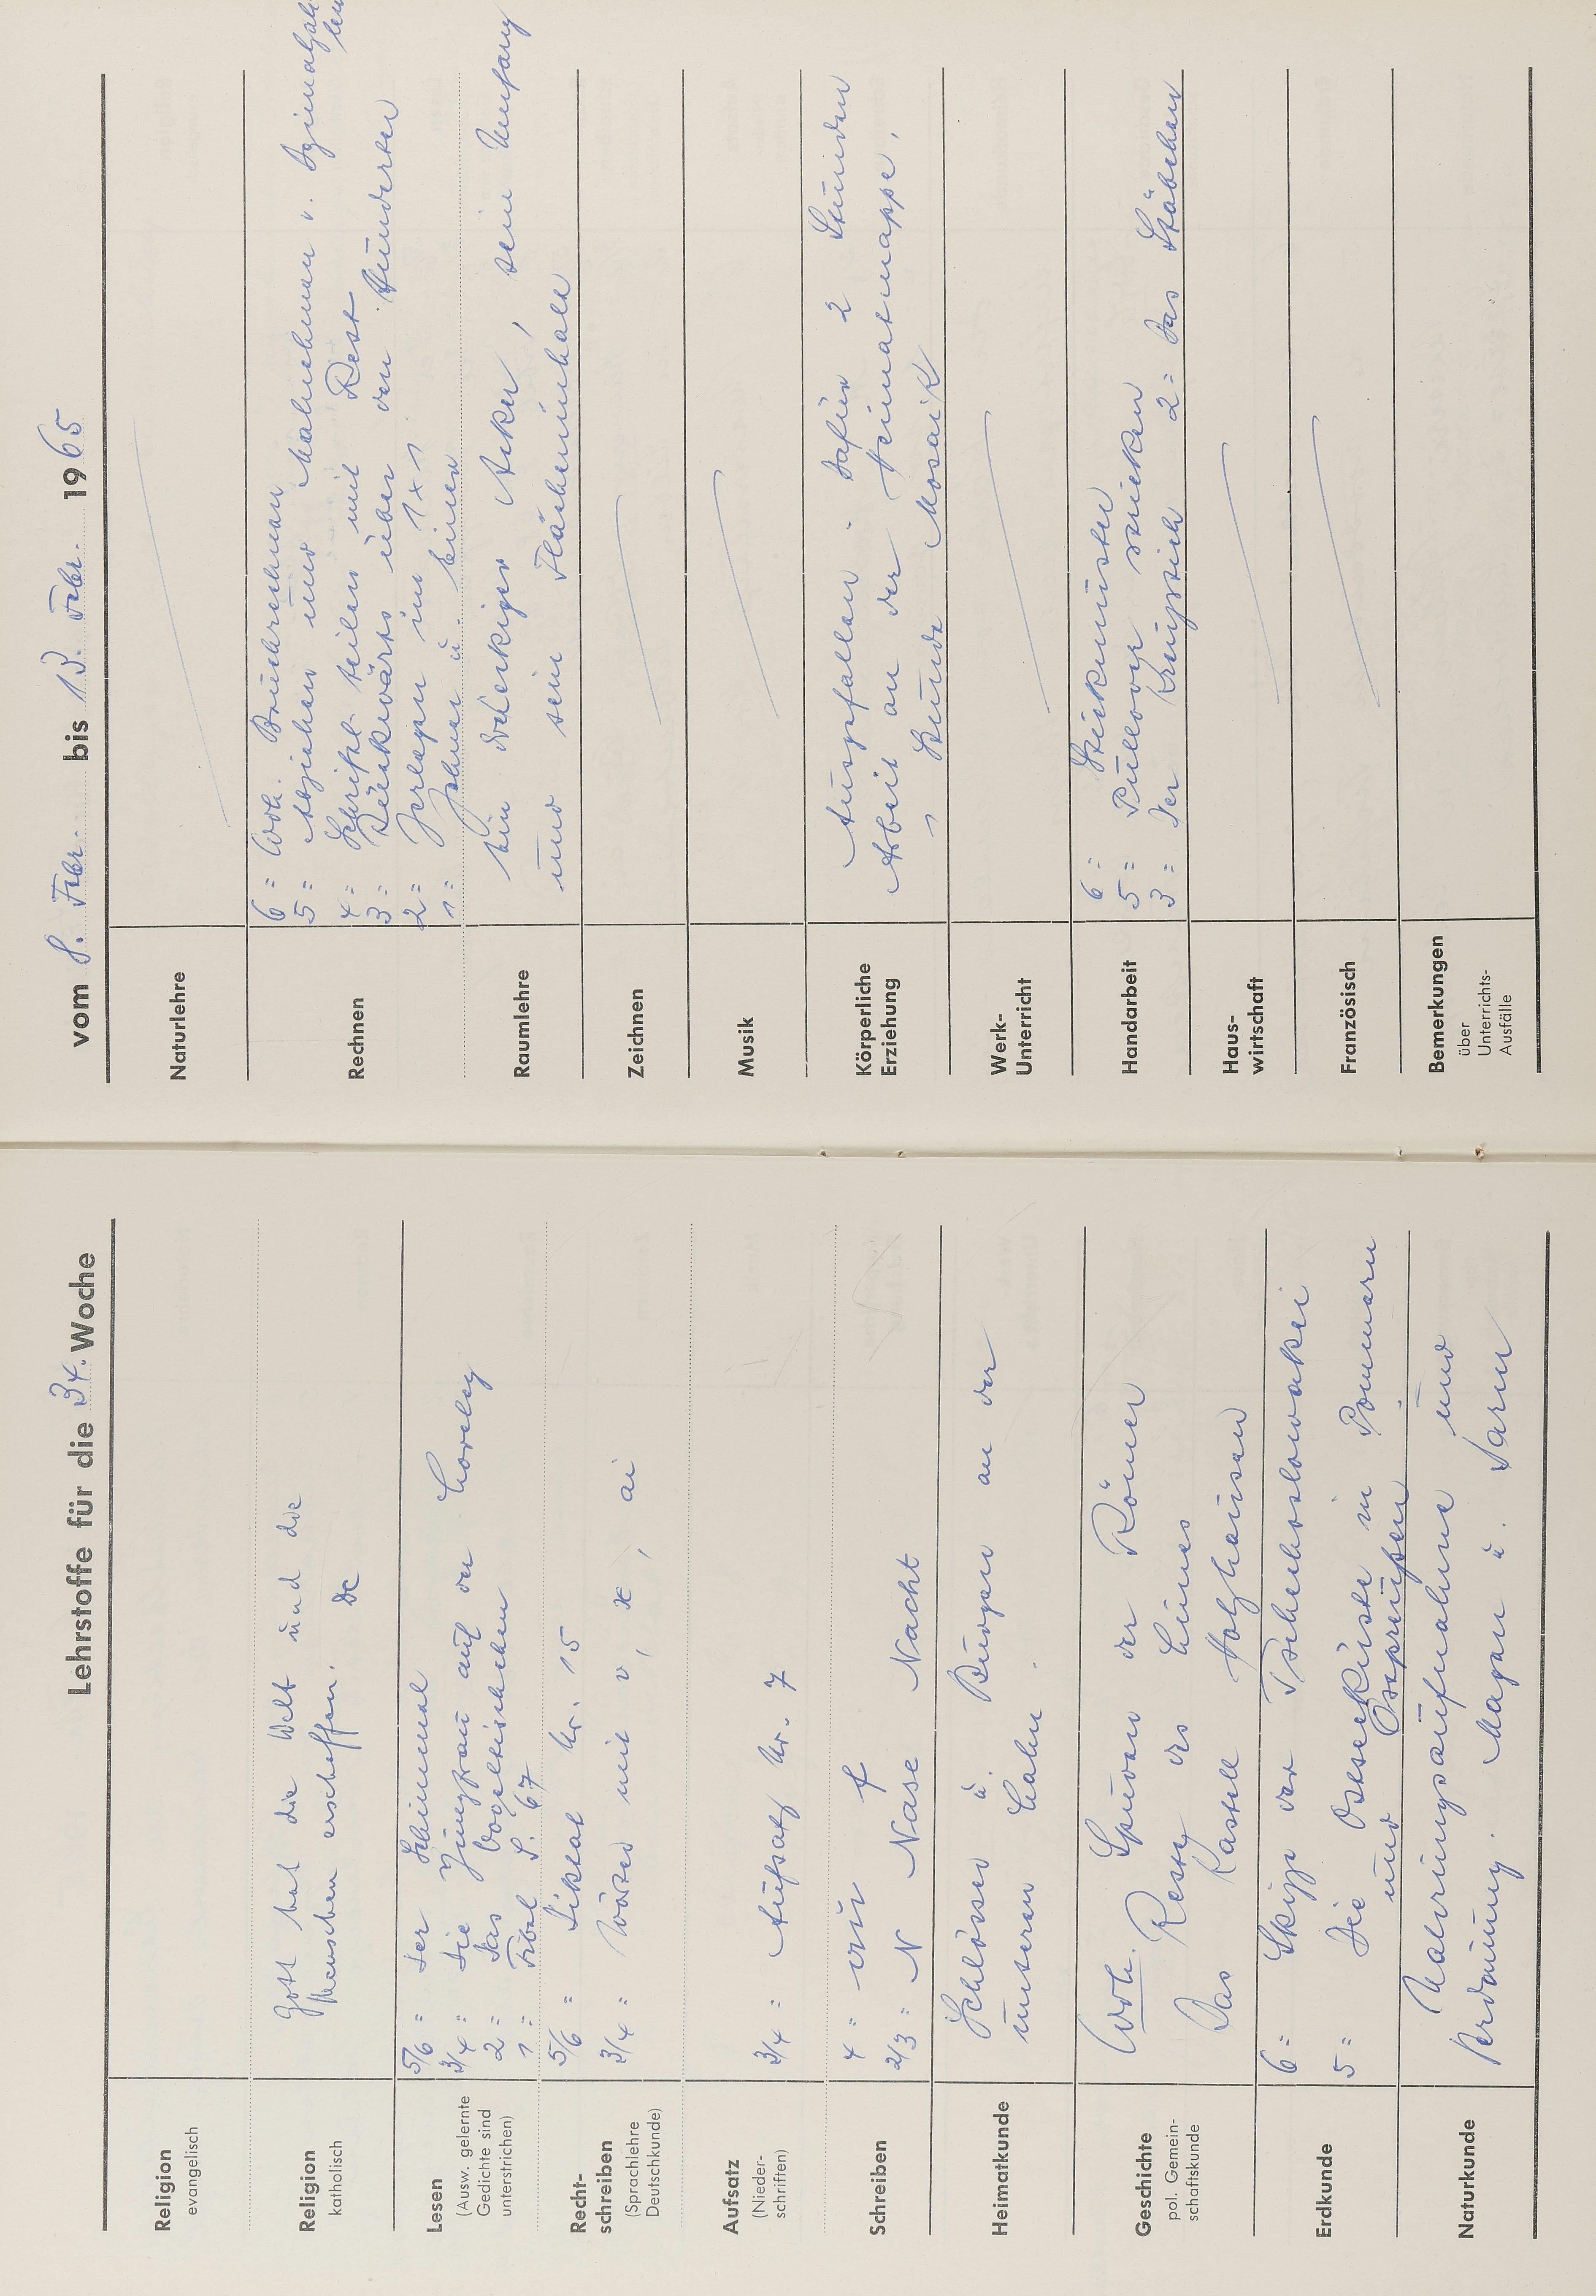 Lehrstoffe für die 34. Woche
Religion
evangelisch
Religion
katholisch
Gott hat die Welt und die
Menschen erschaffen.
Lesen
(Ausw. gelernte
Gedichte sind
unterstrichen)
5/6 = Der Schimmel
3/4 = Die Jungfrau auf der Loreley
2 = Das Vogeltischchen
1 = Fibel S. 67
Recht-
schreiben
(Sprachlehre
Deutschkunde)
5/6 = Diktat Nr. 15
3/4 = Wörter mit v, x, ai
Aufsatz
(Nieder-
schriften)
3/4 = Aufsatz Nr. 7
Schreiben
4 = f
2/3 = N Nase Nacht
Heimatkunde
Schlösser u. Burgen an der
unteren Lahn.
Geschichte
pol. Gemein-
schaftskunde
Wdh. Spuren der Römer
Reste des Limes
Das Kastell Holzhausen
Erdkunde
6 = Skizze der Tschechoslowakei
5 = Die Ostseeküste in Pommern
und Ostpreußen
Naturkunde
Nahrungsaufnahme und
Verdauung. Magen u. Darm
vom 8. Febr. bis 13. Febr. 1965
Naturlehre
Rechnen
6 = Wdh. Bruchrechnen
5 = Abziehen und Malnehmen v. Dezimalzah
len
4 = Schriftl. teilen mit Rest
3 = Rückwärts über den Hunderter
2 = Zerlegen im 1x1
1 = Zehner u. Einer
Raumlehre
Ein rechteckiger Acker, sein Umfang
und sein Flächeninhalt
Zeichnen
Musik
Körperliche
Erziehung
Ausgefallen. Dafür 2 Stunden
Arbeit an der Heimatmappe,
1 Stunde Mosaik
Werk-
Unterricht
Handarbeit
6 = Strickmuster
5 = Pullover stricken
3 = Der Kreuzstich 2 = Das Stäbchen
Haus-
wirtschaft
Französisch
Bemerkungen
über
Unterrichts-
Ausfälle